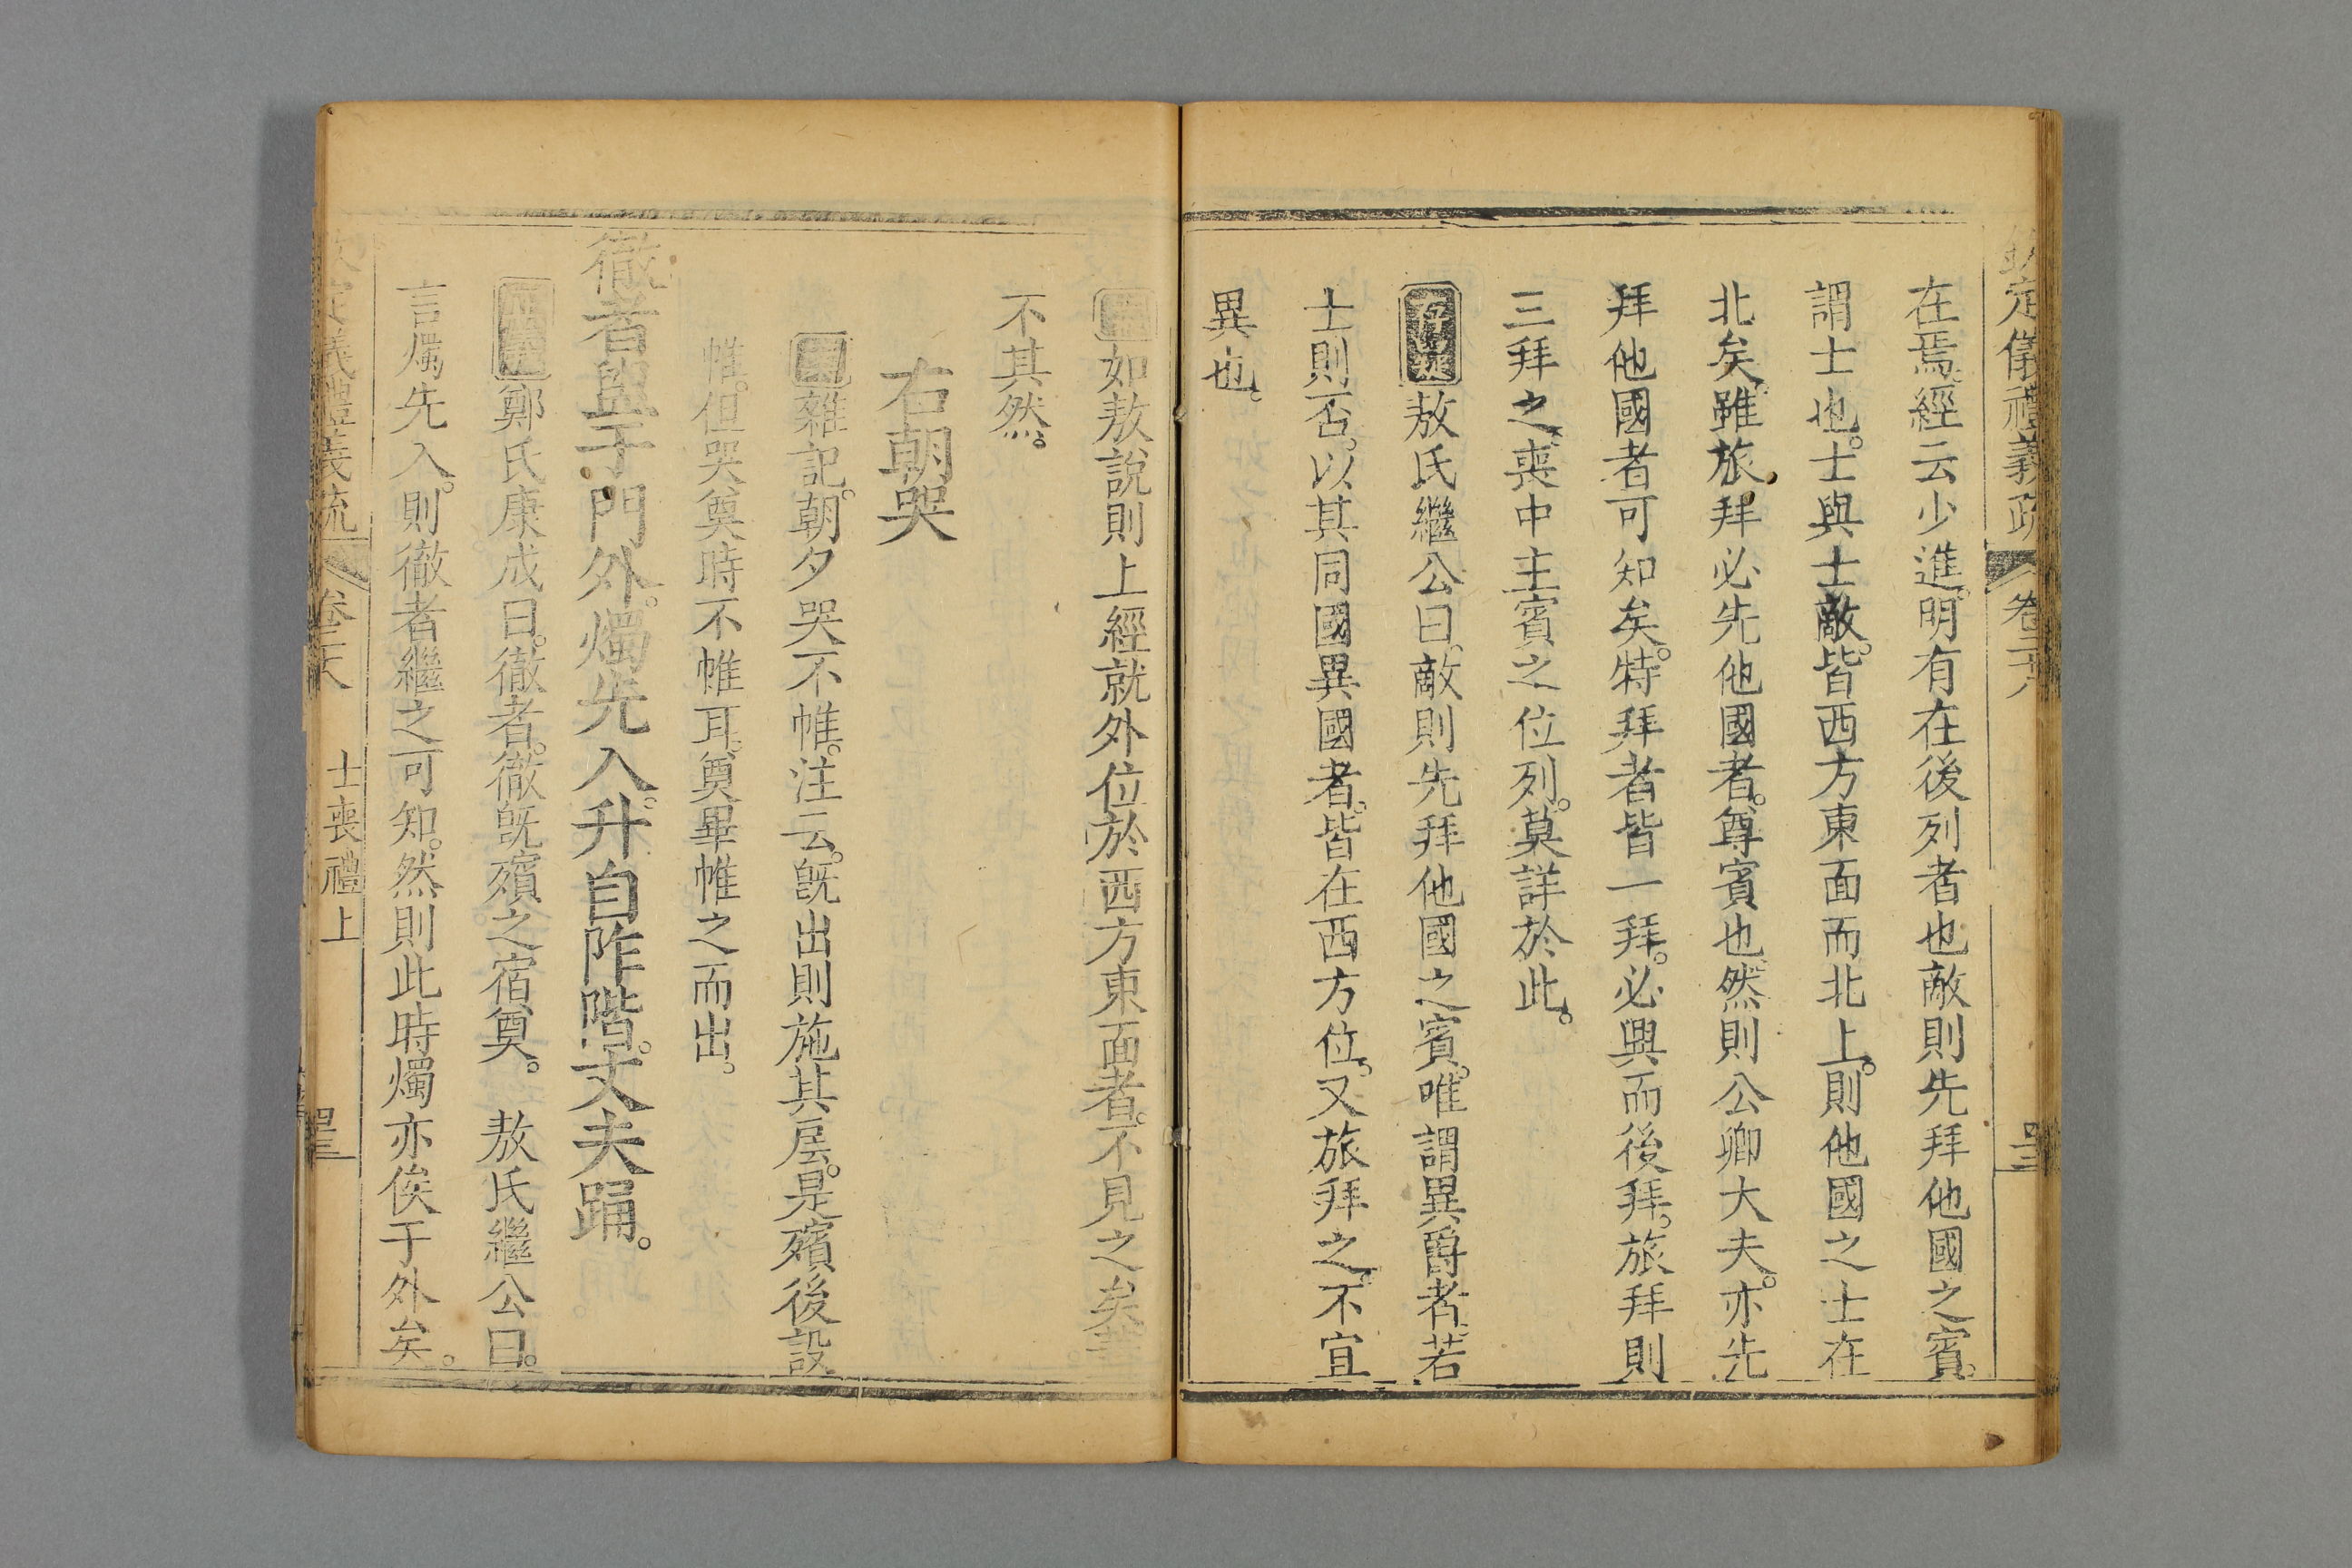 欽定儀禮義疏 卷二十八
在焉經云少進明有在後列者也敵則先拜他國之賓。
謂士也。士與士敵。皆西方東面而北上。則他國之士在
北矣。雖旅拜必先他國者。尊賓也。然則公卿大夫。亦先
拜他國者可知矣。特拜者皆一拜。必興而後拜。旅拜則
三拜之。喪中主賓之位列。莫詳於此。
存疑敖氏繼公曰。敵則先拜他國之賓。唯謂異爵者。若
士則否。以其同國異國者。皆在西方位。又旅拜之。不宜
異也。
如敖說則上經就外位於西方東面者。不見之矣
不其然。
右朝哭
雜記。朝夕哭不帷。注云。既出則施其扂。是殯後設
帷。但哭奠時不帷耳。奠畢帷之而出。
徹者盥于門外。燭先入。升自阼階。丈夫踊。
鄭氏康成曰。徹者。徹既殯之宿奠。 敖氏繼公曰。
言燭先入。則徹者繼之可知。然則此時燭亦俟于外矣。
義禮義疏 卷二十八 士喪禮上